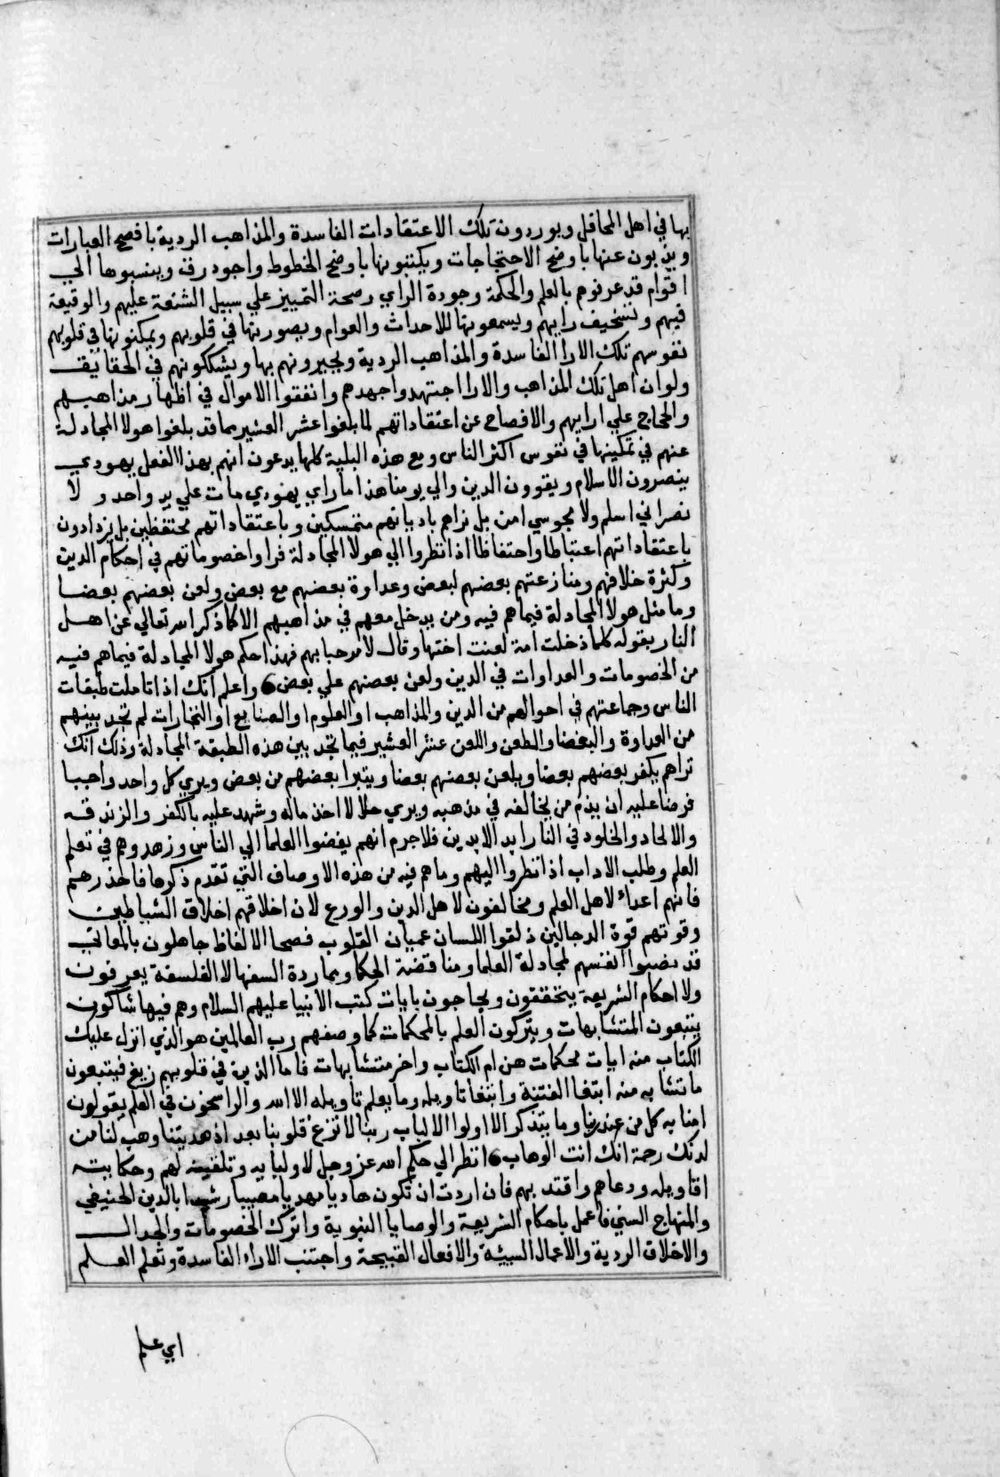 بها في اهل المحافل ويوردون تلك الاعتقادات الفاسدة والمذاهب الردية بافصح العبارات
ويذبون عنها باوضح الاحتجاجات ويكتبونها باوضح الخطوط واجود رق وينسبوها الي
اقوام قد عرفوهم بالعلم والحكمة وجودة الراي وصحة التمييز علي سبيل الشنعة عليهم والوقيعة
فيهم وتسخيف رايهم ويسمعونها للاحداث والعوام ويصورنها في قلوبهم ويمكنونها في قلوبهم
نفوسهم تلك الارا الفاسدة والمذاهب الردية ويحيرونهم بها ويشككونهم في الحقايق
ولو ان اهل تلك المذاهب والارا اجتهدوا جهدهم وانفقوا الاموال في اظهار مذاهبهم
والحجاج علي ارايهم والافصاح عن اعتقاداتهم لما بلغوا عشر العشير مما قد بلغوا هولا المجادلة
عنهم في تمكينها في نفوس اكثر الناس ومع هذه البلية كلها يدعون انهم بهذا الفعل يهودي
ينصرون الاسلام ويقوون الدين والي يومنا هذا ما راي يهودي مات علي يد واحد ولا
نصراني اسلم ولا مجوسي امن بل نراهم باديانهم متمسكين وباعتقاداتهم محتفظين بل يزدادون
باعتقاداتهم اغتباطا واحتفاظا اذا نظروا الي هولا المجادلة فراوا خصوماتهم في احكام الدين
وكثرة خلافهم ومنازعتهم بعضهم لبعض وعداوة بعضهم مع بعض ولعن بعضهم بعضا
وما مثل هولا المجادلة فيما هم فيه ومن يدخل معهم في مذاهبهم الا كما ذكر الله تعالي عن اهل
النار بقوله كلما دخلت امة لعنت اختها وقال لا مرحبا بهم فهذا حكم هولا المجادلة فيما هم فيه
من الخصومات والعداوات في الدين ولعن بعضهم علي بعض واعلم انك اذا تاملت طبقات
الناس وجماعتهم في احوالهم من الدين والمذاهب او العلوم او الصنايع او التجارات لم تجد بينهم
من العداوة والبغضا والطعن واللعن عشر العشير فيما تجد بين هذه الطبقة المجادلة وذلك انك
تراهم يكفر بعضهم بعضا ويلعن بعضهم بعضا ويتبرا بعضهم من بعض ويري كل واحد واجبا
فرضا عليه ان يذم من يخالفه في مذهبه ويري حلالا اخذ ماله وشهد عليه بالكفر والزندقة
والالحاد والخلود في النار ابد الابدين فلا جرم انهم بغضوا العلما الي الناس وزهدوهم في تعلم
العلم وطلب الاداب اذا نظروا اليهم وما هم فيه من هذه الاوصاف التي تقدم ذكرها فاحذرهم
فانهم اعداء لاهل العلم ومخالفون لاهل الدين والورع لان اخلاقهم اخلاق الشياطين
وقوتهم قوة الدجالين ذلقوا اللسان عميان القلوب فصحا الالفاظ جاهلون بالمعاني
قد نصبوا انفسهم لمجادلة العلما ومناقضة الحكما ومماردة السفها لا الفلسفة يعرفون
ولا احكام الشريعة يتحققون ويحاجون بايات كتب الانبيا عليهم السلام وهم فيها شاكون
يتبعون المتشابهات ويتركون العلم بالمحكمات كما وصفهم رب العالمين هو الذي انزل عليك
الكتاب منه ايات محكمات هن ام الكتاب واخر متشابهات فاما الذين في قلوبهم زيغ فيتبعون
ما تشابه منه ابتغا الفتنة وابتغا تاويله وما يعلم تاويله الا الله والراسخون في العلم يقولون
امنا به كل من عند ربنا وما يتذكر الا اولوا الالباب ربنا لا تزغ قلوبنا بعد اذ هديتنا وهب لنا من
لدنك رحمة انك انت الوهاب انظر الي حكم الله عز وجل لاوليايه وتلقينه لهم وحكايته
اقاويله ودعاهم واقتد بهم فان اردت ان تكون هاديا مهديا مصيبا رشيدا بالدين الحنيفي
والمنهاج السني فاعمل باحكام الشريعة والوصايا النبوية واترك الخصومات والجدال
والاخلاق الردية والاعمال السيئة والافعال القبيحة واجتنب الاراء الفاسدة وتعلم العلم
اي علم